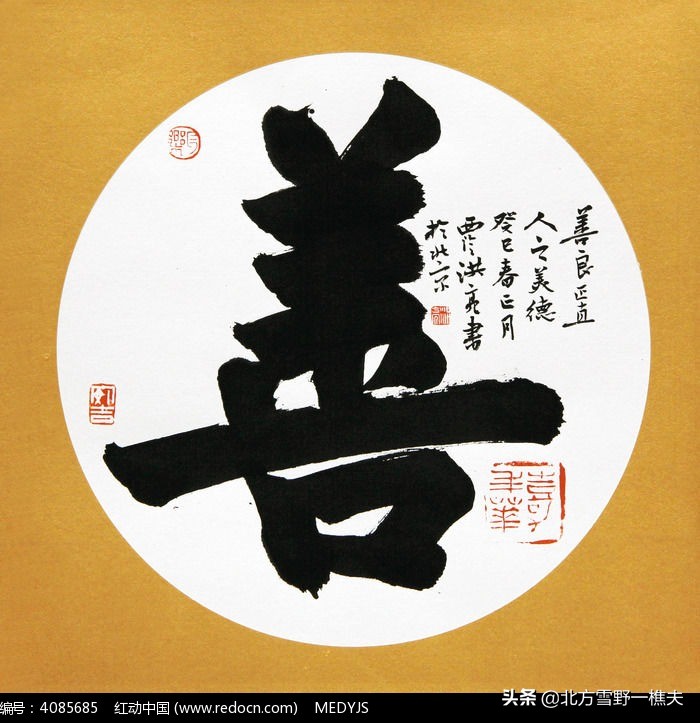 善
善良正直
人之美德
癸巳春正月
贾洪亮书
於北京
编号：4085685 红动中国 (www.redocn.com) MEDYJS
头条 @北方雪野一樵夫